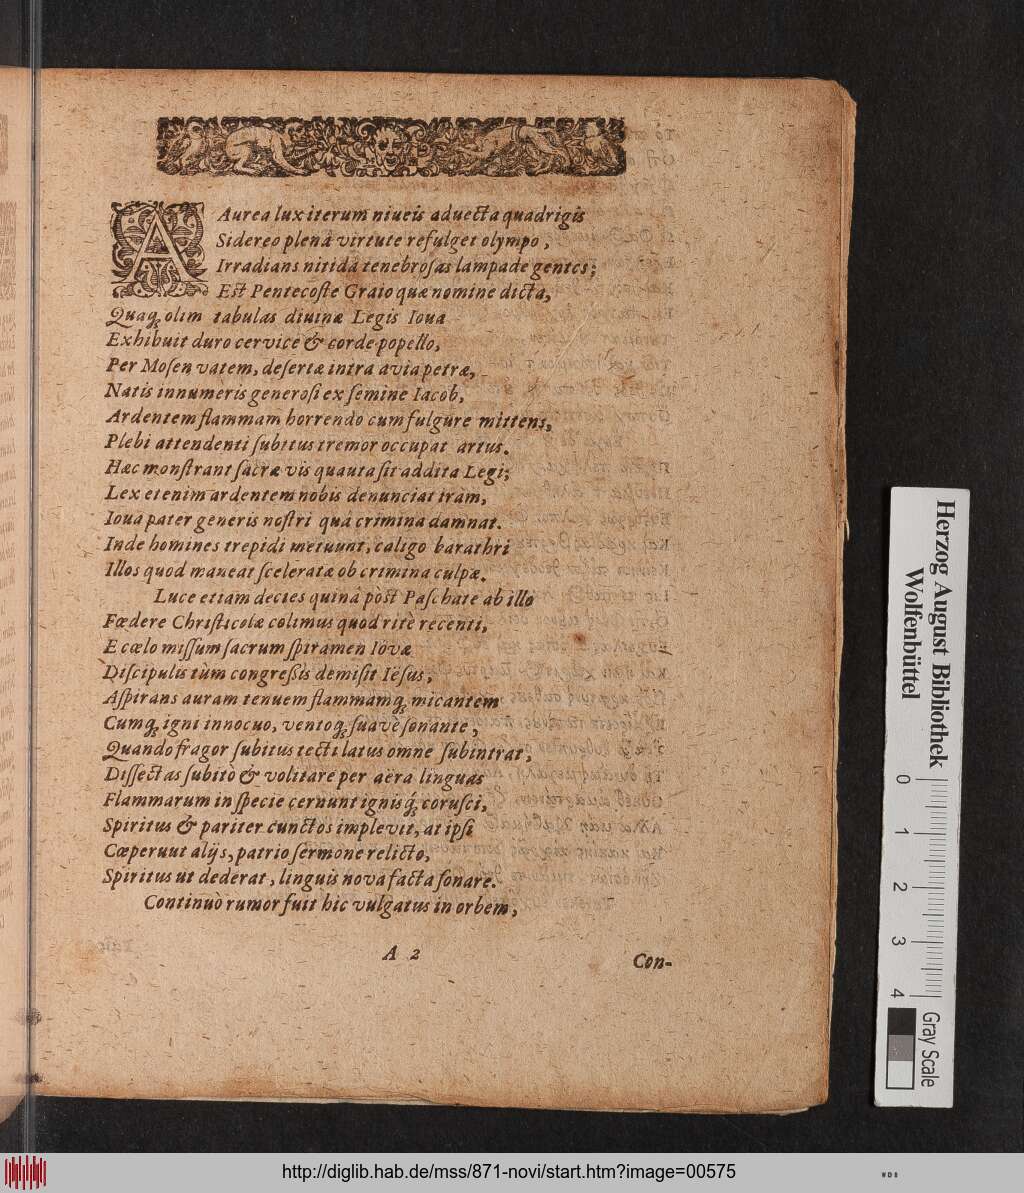 AAurea lux iterum niueis aduecta quadrigis
Sidereo plenâ virtute refulget olympo,
Irradians nitidâ tenebroſas lampade gentes;
Eſt Pentecoſte Graio quæ nomine dicta,
Quaq́; olim tabulas diuinæ Legis Ioua
Exhibuit duro cervice & corde popello,
Per Moſen vatem, deſertæ intra avia petræ,
Natis innumeris generoſi ex ſemine Iacob,
Ardentem flammam horrendo cum fulgure mittens,
Plebi attendenti ſubitus tremor occupat artus.
Hæc monſtrant ſacræ vis quauta ſit addita Legi;
Lex etenim ardentem nobis denunciat iram,
Ioua pater generis noſtri quâ crimina damnat.
Inde homines trepidi metuunt, caligo barathri
Illos quod maneat ſceleratæ ob crimina culpæ.
Luce etiam decies quinâ pòſt Paſchate ab illo
Fœdere Chriſticolæ colimus quod ritè recenti,
E cœlo miſſum ſacrum ſpiramen Iôvæ
Diſcipulis tùm congreßis demiſit Ieſus,
Aſpirans auram tenuem flammamq́; micantem
Cumq́; igni innocuo, ventoq́; ſuavè ſonante,
Quando fragor ſubitus tecti latus omne ſubintrat,
Diſſectas ſubitò & volitare per aëra linguas
Flammarum in ſpecie cernunt ignisq́; coruſci,
Spiritus & pariter cunctos implevit, at ipſi
Cœperuut alijs, patrio ſermone relicto,
Spiritus ut dederat, linguis nova facta ſonare.
Continuò rumor fuit hic vulgatus in orbem,
A 2
Con-
Herzog August Bibliothek
Wolfenbüttel
0 1 2 3 4
Gray Scale
http://diglib.hab.de/mss/871-novi/start.htm?image=00575